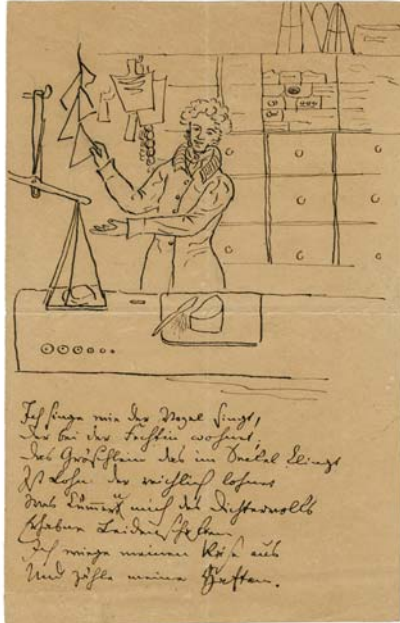 Ich singe wie der Vogel singt,
Der bei der Fechtin wohnet,
Das Gröschlein das im Seckel klingt
Ist Lohn der reichlich lohnet
Was kümmert mich des Dichtervolks
Erhabne Leidenschaften
Ich wiege meinen Käse aus
Und zähle meine Haften.